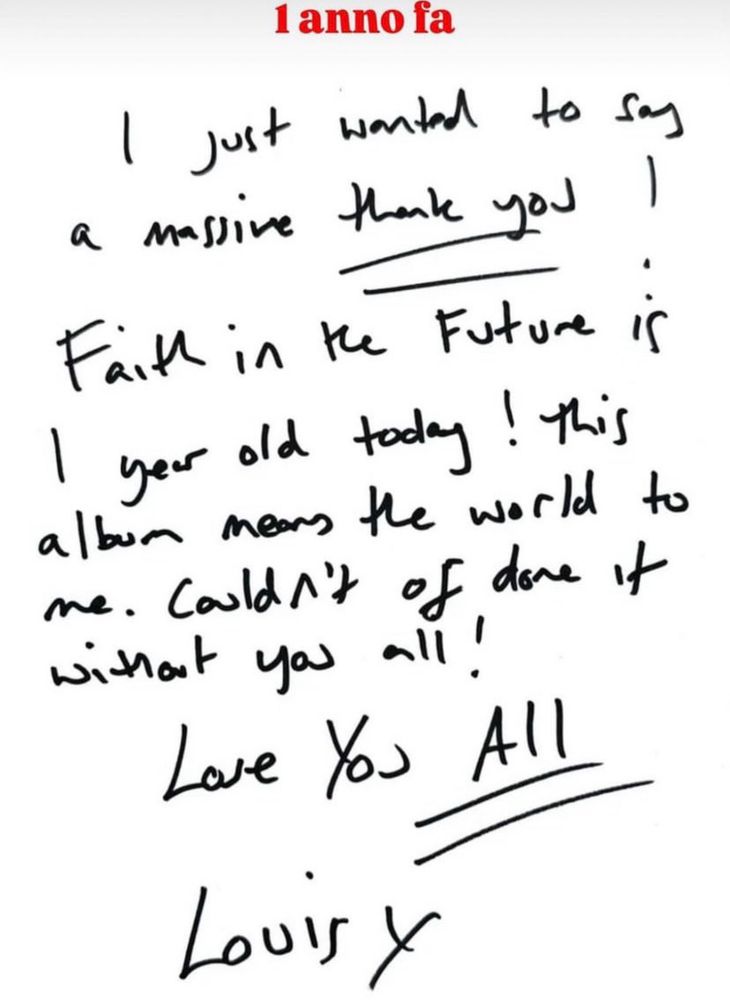 1 anno fa
I just wanted to say
a massive thank you !
Faith in the Future is
1 year old today! this
album means the world to
me. Couldn't of done it
without you all!
Love You All
Louis x